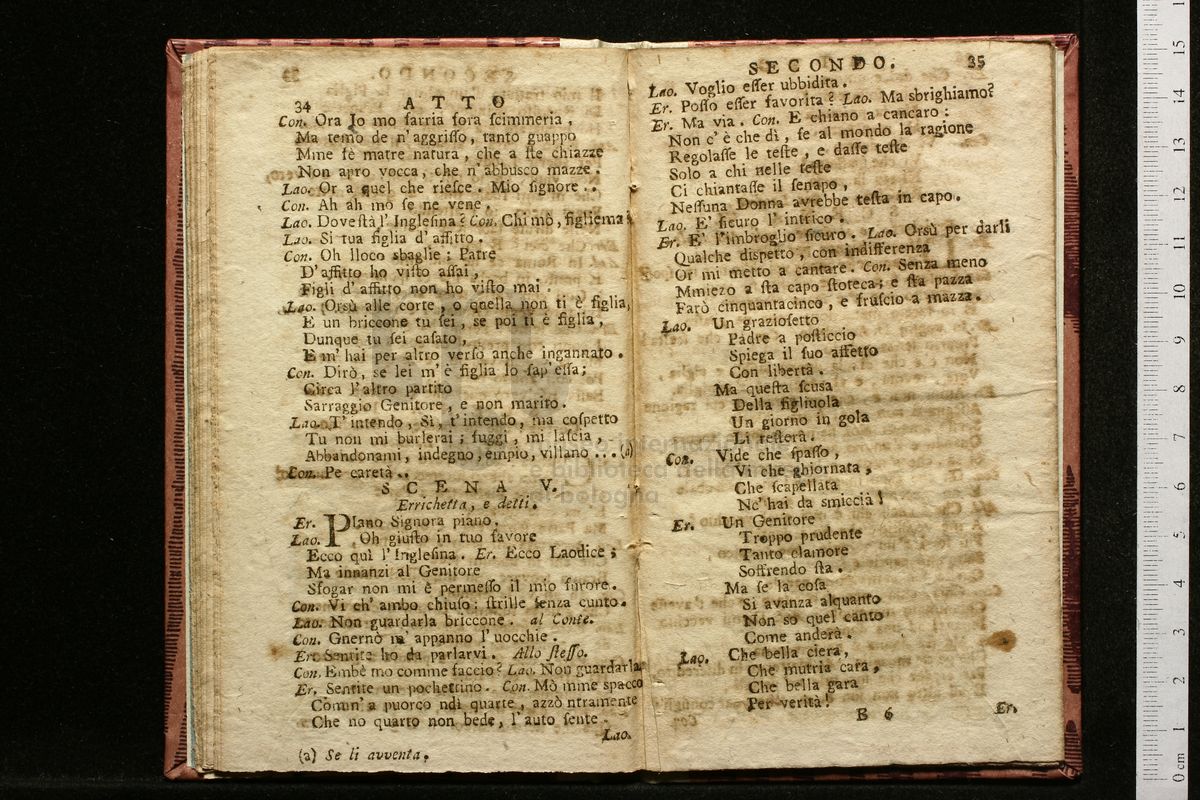 34 ATTO
Con. Ora Jo mo sarria fora scimmeria,
Ma temo de n'aggrisso, tanto guappo
Mme fè matre natura, che a ste chiazze
Non apro vocca, che n'abbusco mazze.
Lao. Or a quel che riesce. Mio signore..
Con. Ah ah mo se ne vene.
Lao. Dov'està l'Inglesina? Con. Chi mò, figliema?
Lao. Si tua figlia d'affitto.
Con. Oh lloco sbaglie: Patre
D'affitto ho visto assai,
Figli d'affitto non ho visto mai.
Lao. Orsù alle corte, o quella non ti è figlia,
E un briccone tu sei, se poi ti è figlia,
Dunque tu sei casato,
E m'hai per altro verso anche ingannato.
Con. Dirò, se lei m'è figlia lo sap'essa;
Circa l'altro partito
Sarraggio Genitore, e non marito.
Lao. T'intendo, Sì, t'intendo, ma cospetto
Tu non mi burlerai; fuggi, mi lascia,
Abbandonami, indegno, empio, villano ... (a)
Con. Pe caretà..
SCENA V.
Errichetta, e detti.
Er. PIano Signora piano.
Lao. Oh giusto in tuo favore
Ecco quì l'Inglesina. Er. Ecco Laodice;
Ma innanzi al Genitore
Sfogar non mi è permesso il mio furore.
Con. Vi ch'ambo chiuso: strille senza cunto.
Lao. Non guardarla briccone. al Conte.
Con. Gnernò m'appanno l'uocchie.
Er. Sentite ho da parlarvi. Allo stesso.
Con. Embè mo comme faccio? Lao. Non guardarla
Er. Sentite un pochettino. Con. Mò mme spacco
Comm'a puorco ndi quarte, azzò ntramente
Che no quarto non bede, l'auto sente.
Lao.
(a) Se li avventa.
SECONDO. 35
Lao. Voglio esser ubbidita.
Er. Posso esser favorita? Lao. Ma sbrighiamo?
Er. Ma via. Con. E chiano a cancaro:
Non c'è che dì, se al mondo la ragione
Regolasse le teste, e dasse teste
Solo a chi nelle teste
Ci chiantasse il senapo,
Nessuna Donna avrebbe testa in capo.
Lao. E' sicuro l'intrico.
Er. E' l'imbroglio sicuro. Lao. Orsù per darli
Qualche dispetto, con indifferenza
Or mi metto a cantare. Con. Senza meno
Mmiezo a sta capo stoteca; e sta pazza
Farò cinquantacinco, e fruscio a mazza.
Lao. Un graziosetto
Padre a posticcio
Spiega il suo affetto
Con libertà.
Ma questa scusa
Della figliuola
Un giorno in gola
Li resterà.
Con. Vide che spasso,
Vi che ghiornata,
Che scapellata
Nc'hai da smiccià!
Er. Un Genitore
Troppo prudente
Tanto clamore
Soffrendo sta.
Ma se la cosa
Si avanza alquanto
Non so quel canto
Come anderà.
Lao. Che bella ciera,
Che mutria cara,
Che bella gara
Per verità!
B 6 Er.